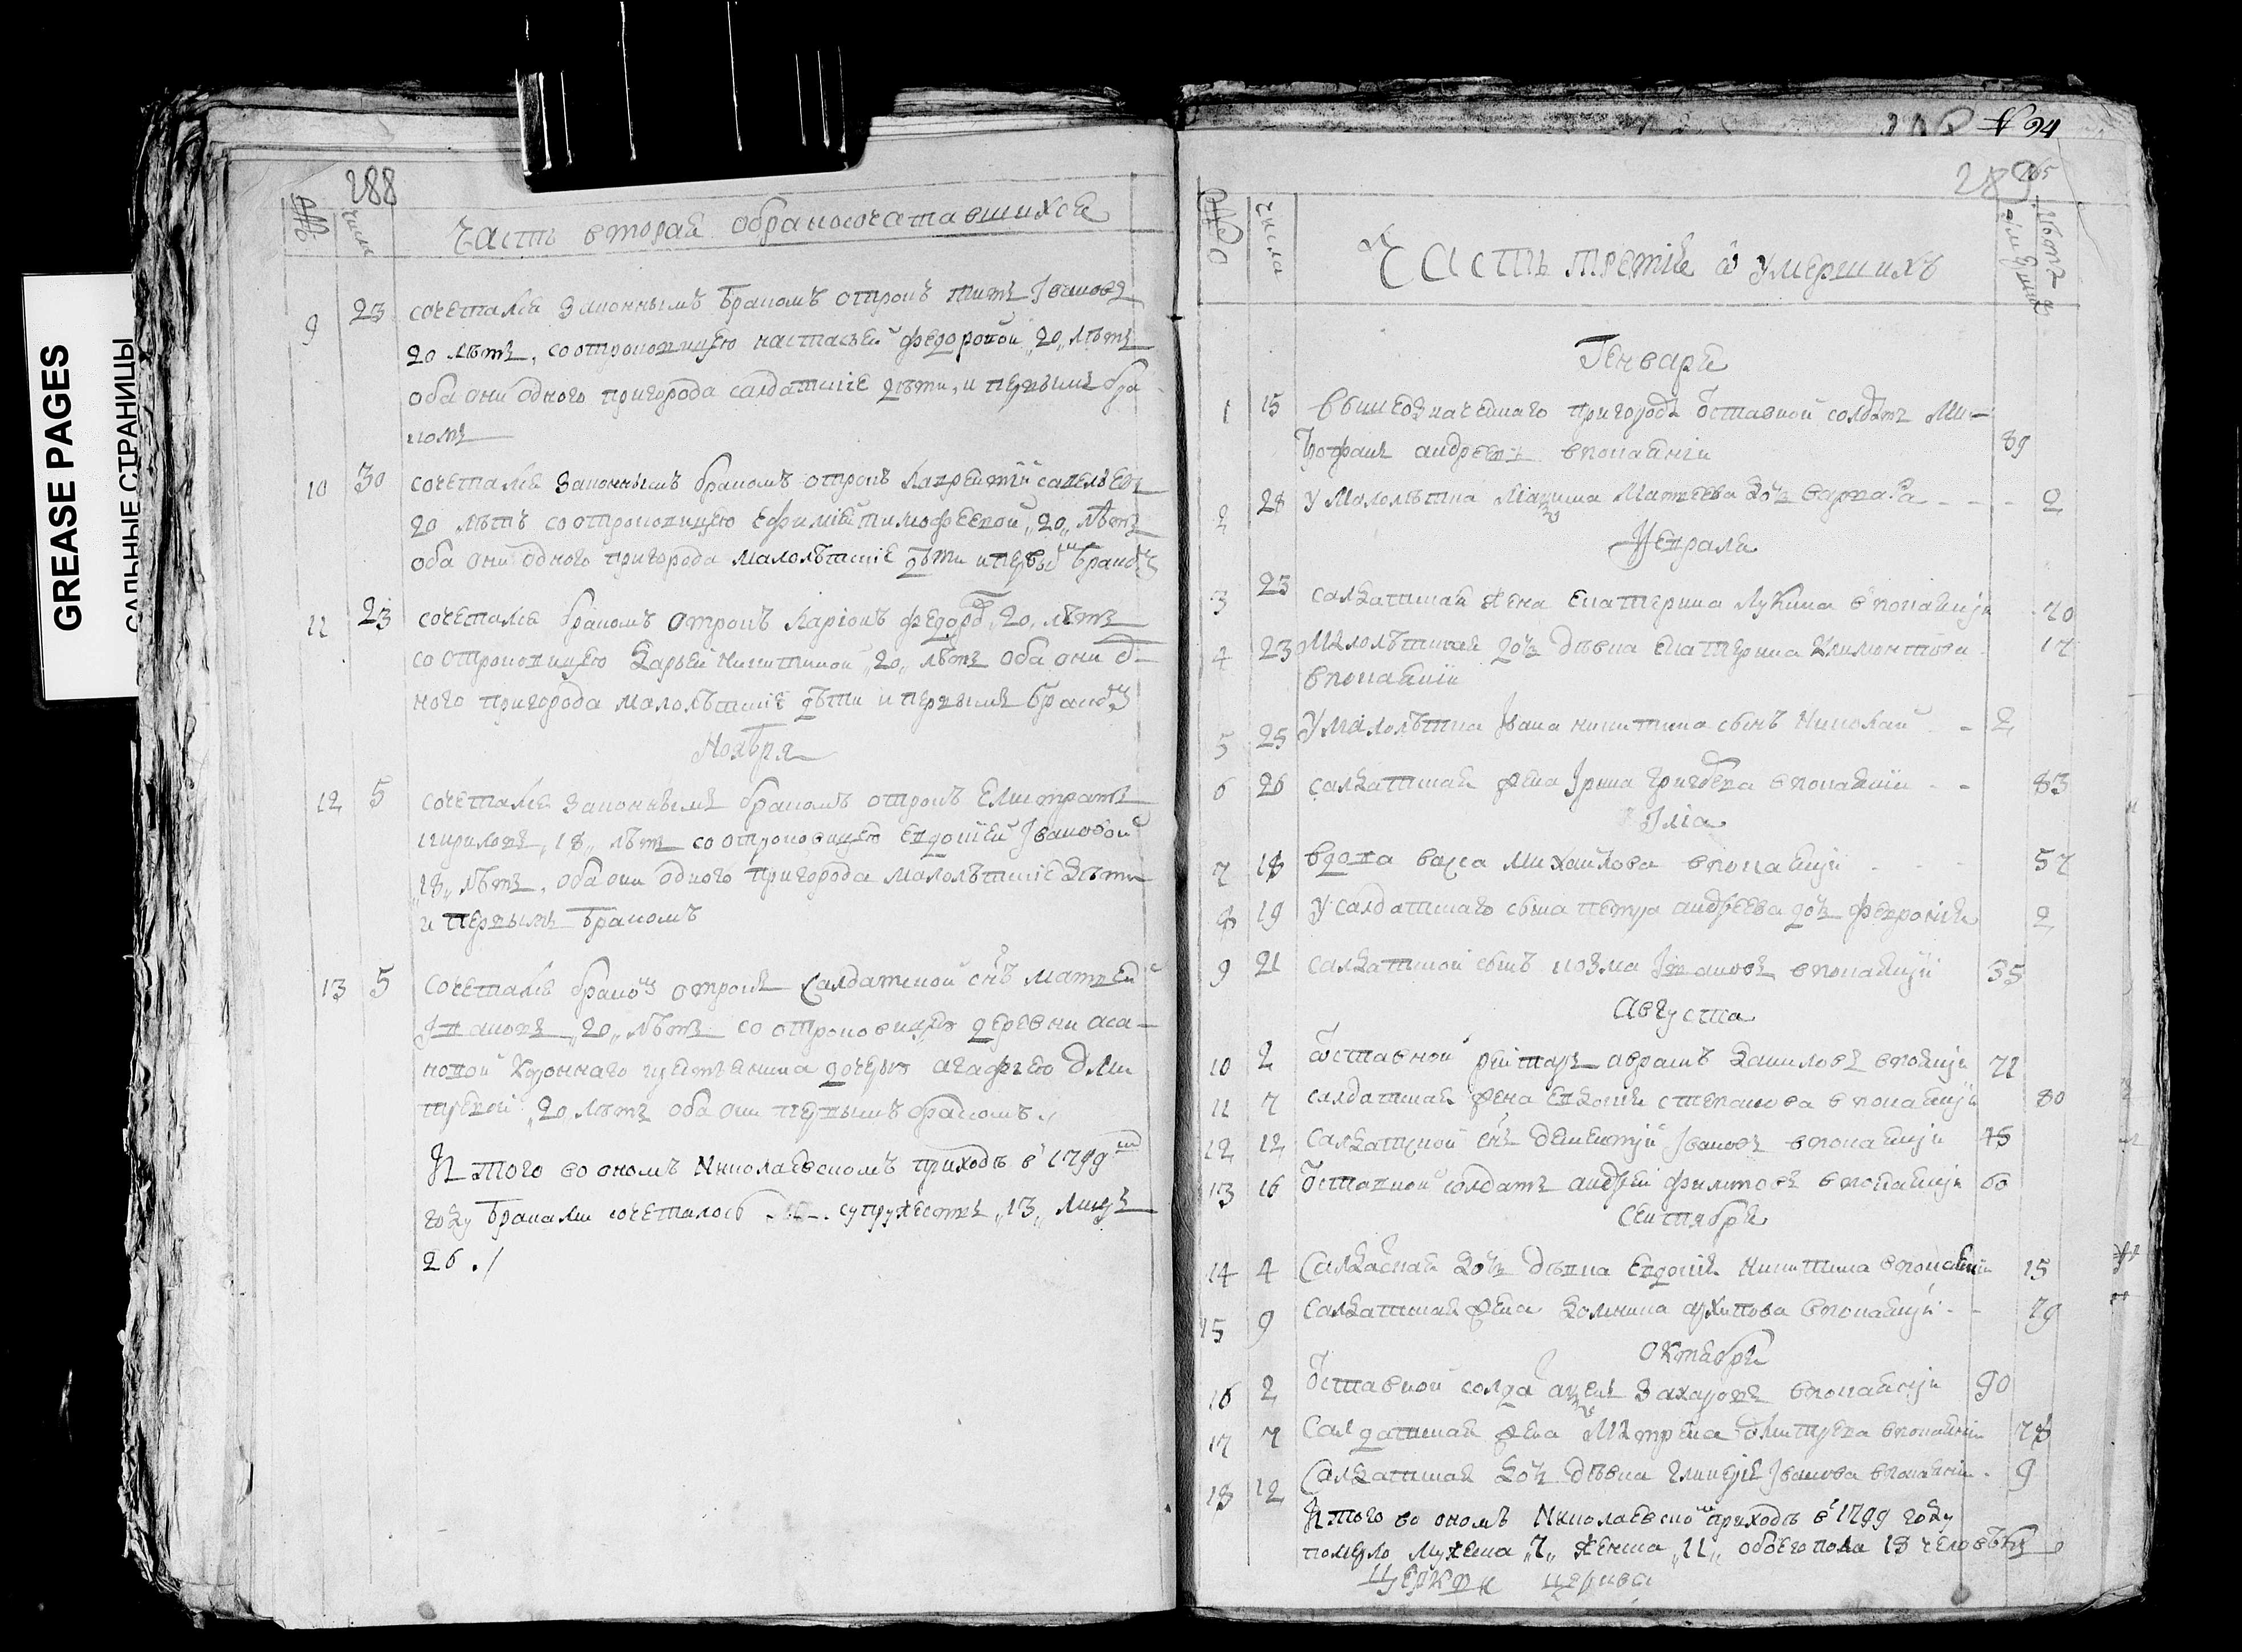 GREASE PAGES
САЛЬНЫЕ СТРАНИЦЫ
288
числа
Часть вторая обракосочетавшихся
9 23 сочетался законнымъ бракомъ отрокъ титъ Ивановъ
20 лѣтъ, соотроковицею настасьей федоровой „20„ лѣтъ
оба они одного пригорода салдатские дѣти, и первымъ бра
комъ
10 30 сочетался законнымъ бракомъ отрокъ лаврентий савельевъ
20 лѣтъ соотроковицею ефимией тимофеевой „20„ лѣтъ
оба они одного пригорода малолѣтские дѣти и первымъ бракомъ
11 23 сочетался бракомъ отрокъ ларионъ федоровъ 20, лѣтъ
со отроковицею дарьей никитиной „20„ лѣтъ оба они од-
ного пригорода малолѣтские дѣти и первымъ бракомъ
Ноября
12 5 сочетался законнымъ бракомъ отрокъ елистратъ
кириловъ „18„ лѣтъ со отроковицею евдокией Ивановой
„18„ лѣтъ, оба они одного пригорода малолѣтские дѣти
и первымъ бракомъ
13 5 сочетался бракомъ отрокъ салдатской сынъ матвей
Ивановъ „20„ лѣтъ со отроковицею деревни аса-
новой крестьянина дочерью агафьею дми
треевой „20 лѣтъ оба они первымъ бракомъ
Итого во ономъ Николаевскомъ приходѣ в 1799мъ
году браками сочеталось супружествъ „13„ лицъ
26
N 94
289
числа
Часть третия ѿ умершихъ
лѣтъ
Генваря
1 15 вышеозначеннаго пригорода ѿставной солдатъ Ми-
трофанъ андреевъ впокаянии 89
2 28 У малолѣтка Максима Матвеева дочь варвара - - - 2
Февраля
3 23 салдатская жена екатерина Лукина впокаянии 70
4 23 Малолѣтская дочь дѣвка екатерина Климонтова 17
впокаянии
5 25 У малолѣтка Ивана никитина сынъ Николай - 2
6 26 салдатская жена Ирина григорьева впокаянии - - 83
Июля
7 18 вдова васса михайлова впокаянии 57
8 19 У салдатскаго сына петра андреева дочь феврония 2
9 21 салдатской сынъ козма Ивановъ впокаянии 35
Августа
10 2 ѿставной рейтаръ аврамъ даниловъ впокаянии 71
11 7 салдатская жена евдокия степанова впокаянии 80
12 12 салдатской сынъ дементий Ивановъ впокаянии 45
13 16 ѿставной солдатъ андрей филиповъ впокаянии 60
Сентября
14 4 Салдатская дочь дѣвка евдокия Никитина впокаянии 15
15 9 салдатская жена домника архипова впокаянии - - 79
Октября
16 2 ѿставной солдатъ Захаровъ впокаянии 90
17 7 Салдатская жена Матрена дмитрева впокаянии 78
18 12 Салдатская дочь дѣвка гликерия Иванова впокаянии - 9
Итого во ономъ Николаевскомъ приходѣ в 1799 году
померло мужеска „7„ женска „11„ обоего пола 18 человѣкъ
церкви церкова